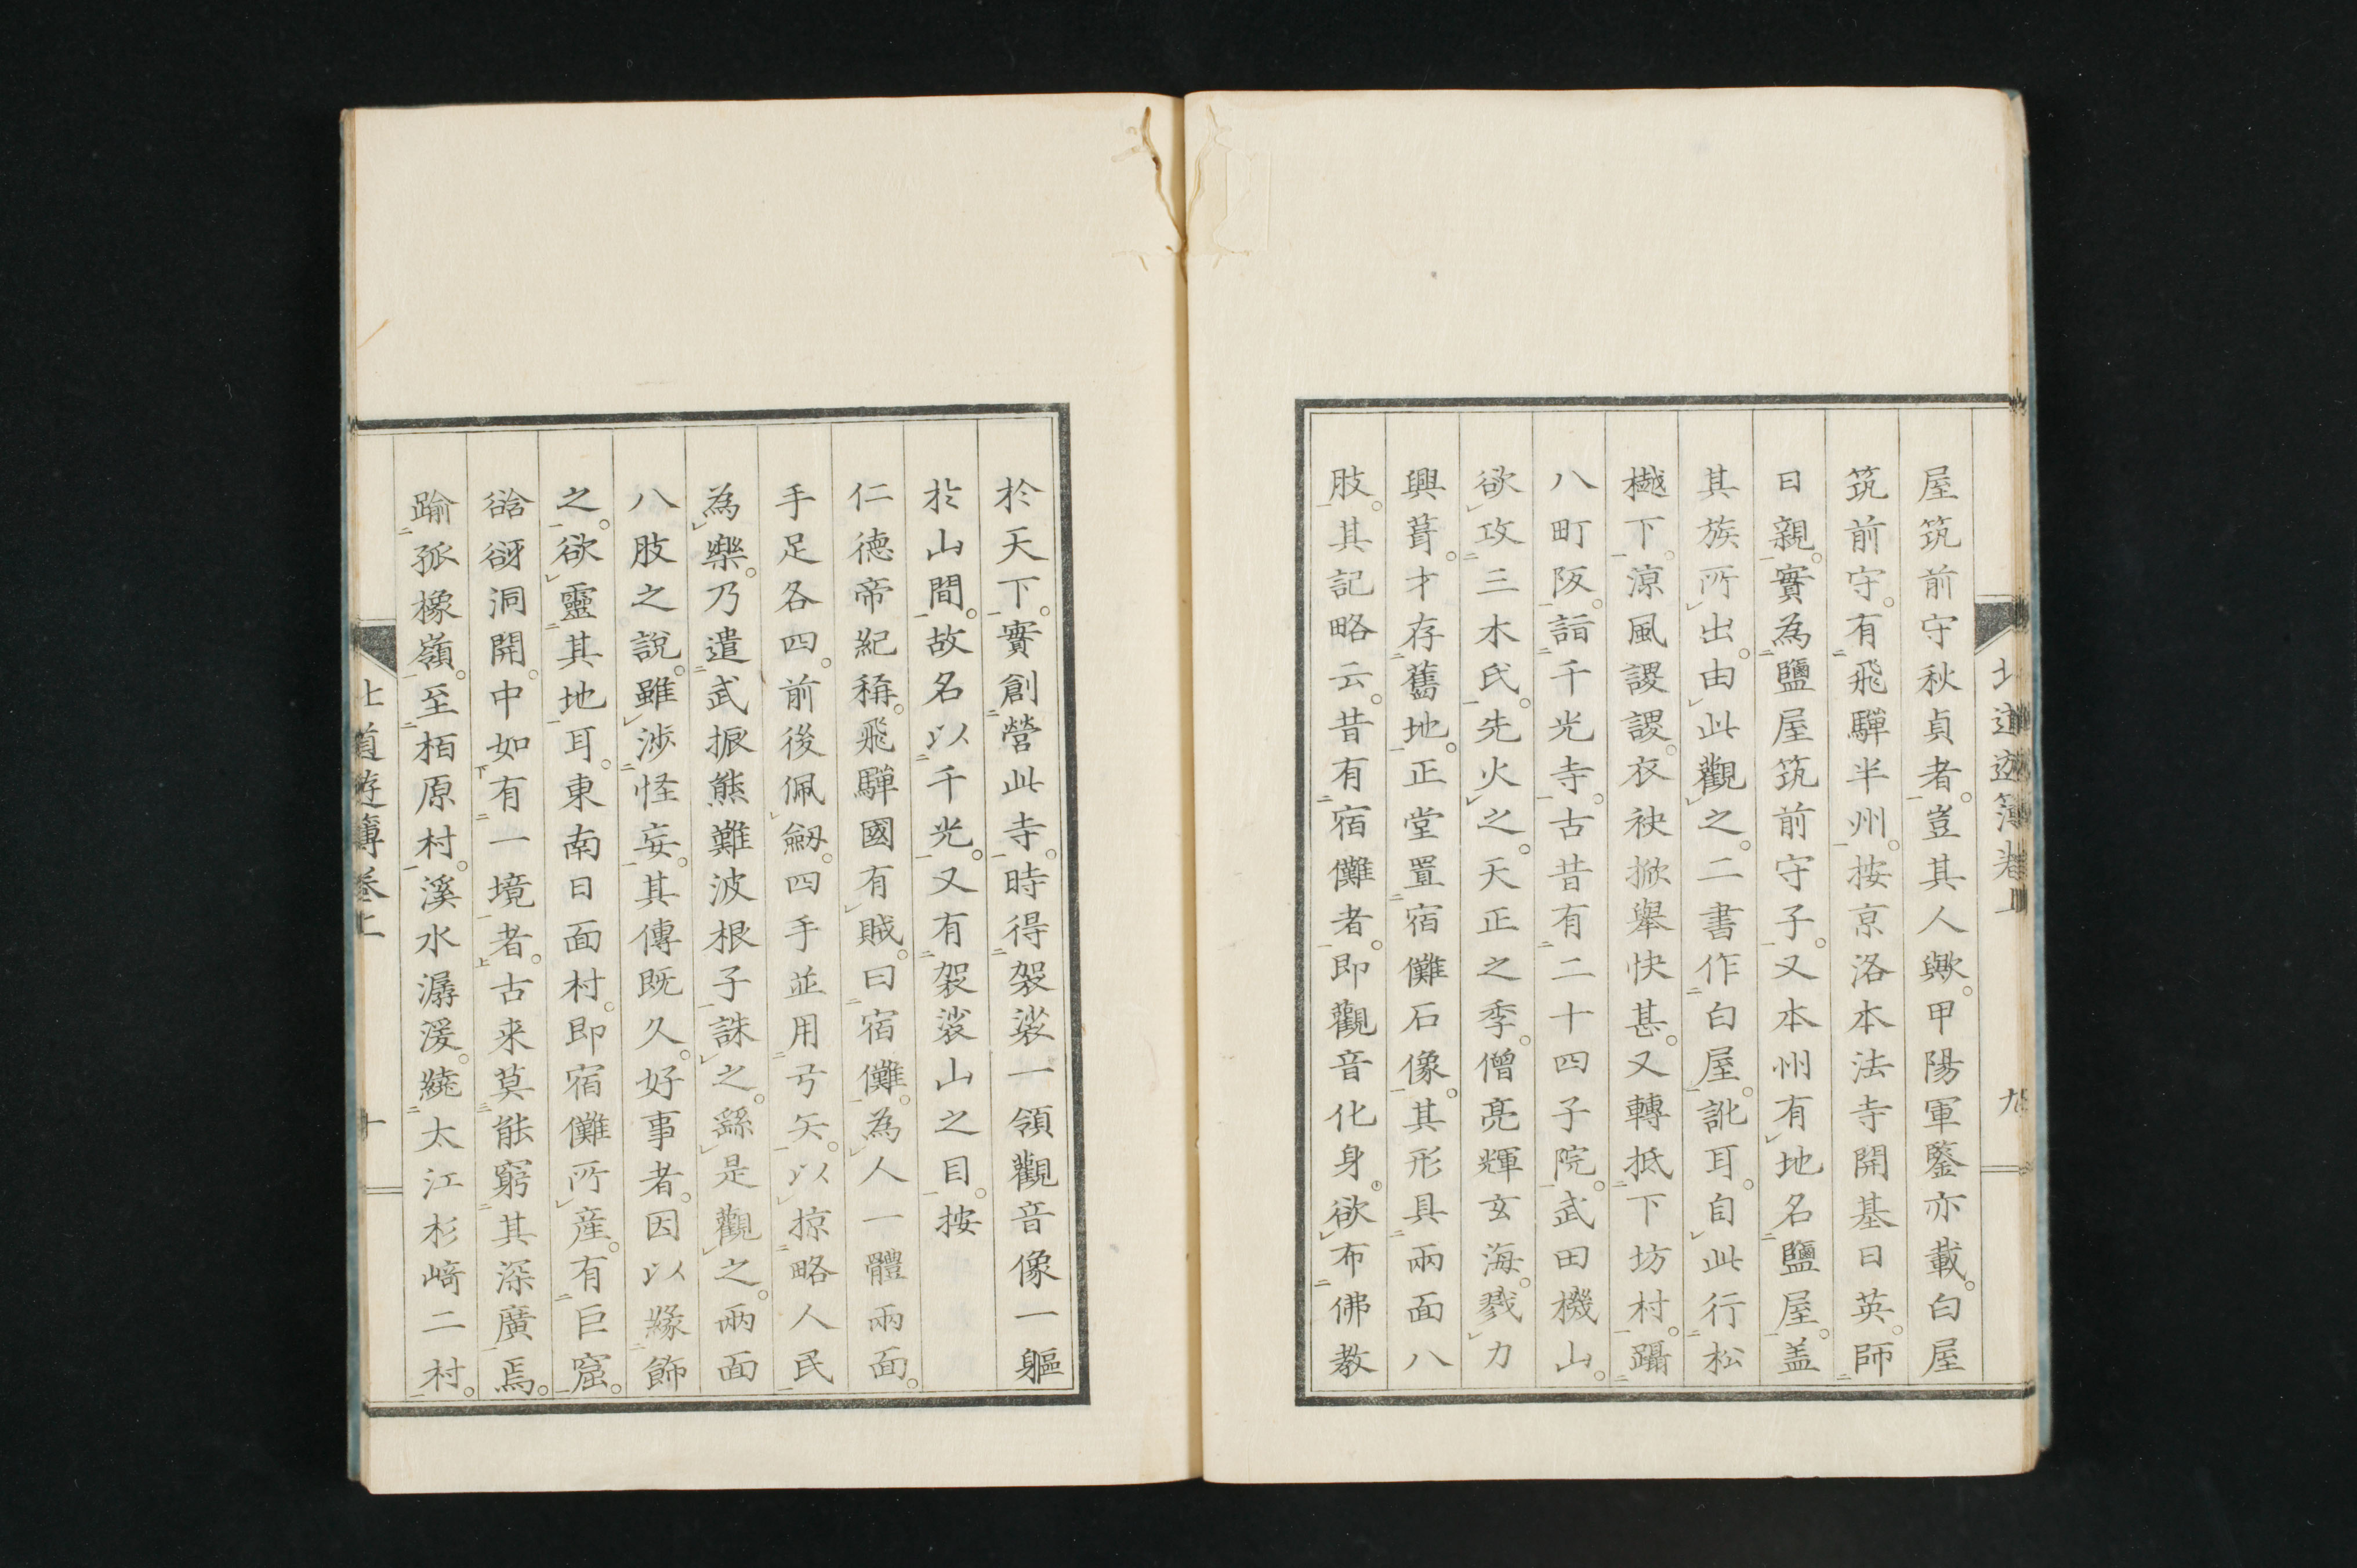 北道遊簿卷上 九
屋筑前守秋貞者。豈其人歟。甲陽軍鑒亦載。白屋
筑前守。有飛驒半州。按京洛本法寺開基日英。師
日親。實為鹽屋筑前守子。又本州有地名鹽屋。盖
其族所出。由此觀之。二書作白屋。訛耳。自此行松
樾下。涼風謖謖。衣袂掀舉快甚。又轉抵下坊村。躡
八町阪。詣千光寺。古昔有二十四子院。武田機山。
欲攻三木氏。先火之。天正之季。僧亮輝玄海。戮力
興葺。才存舊地。正堂置宿儺石像。其形具兩面八
肢。其記略云。昔有宿儺者。即觀音化身。欲布佛教
於天下。實創營此寺。時得袈裟一領觀音像一軀
於山間。故名以千光。又有袈裟山之目。按
仁德帝紀稱。飛驒國有賊。曰宿儺。為人一體兩面。
手足各四。前後佩劒。四手並用弓矢。以掠略人民
為樂。乃遣武振熊難波根子誅之。繇是觀之。兩面
八肢之說。雖渉怪妄。其傳既久。好事者。因以緣飾
之。欲靈其地耳。東南日面村。即宿儺所産。有巨窟。
谽谺洞開。中如有一境者。古来莫能窮其深廣焉。
踰孤橡嶺。至栢原村。溪水潺湲。繞太江杉﨑二村。
北道遊簿卷上 十